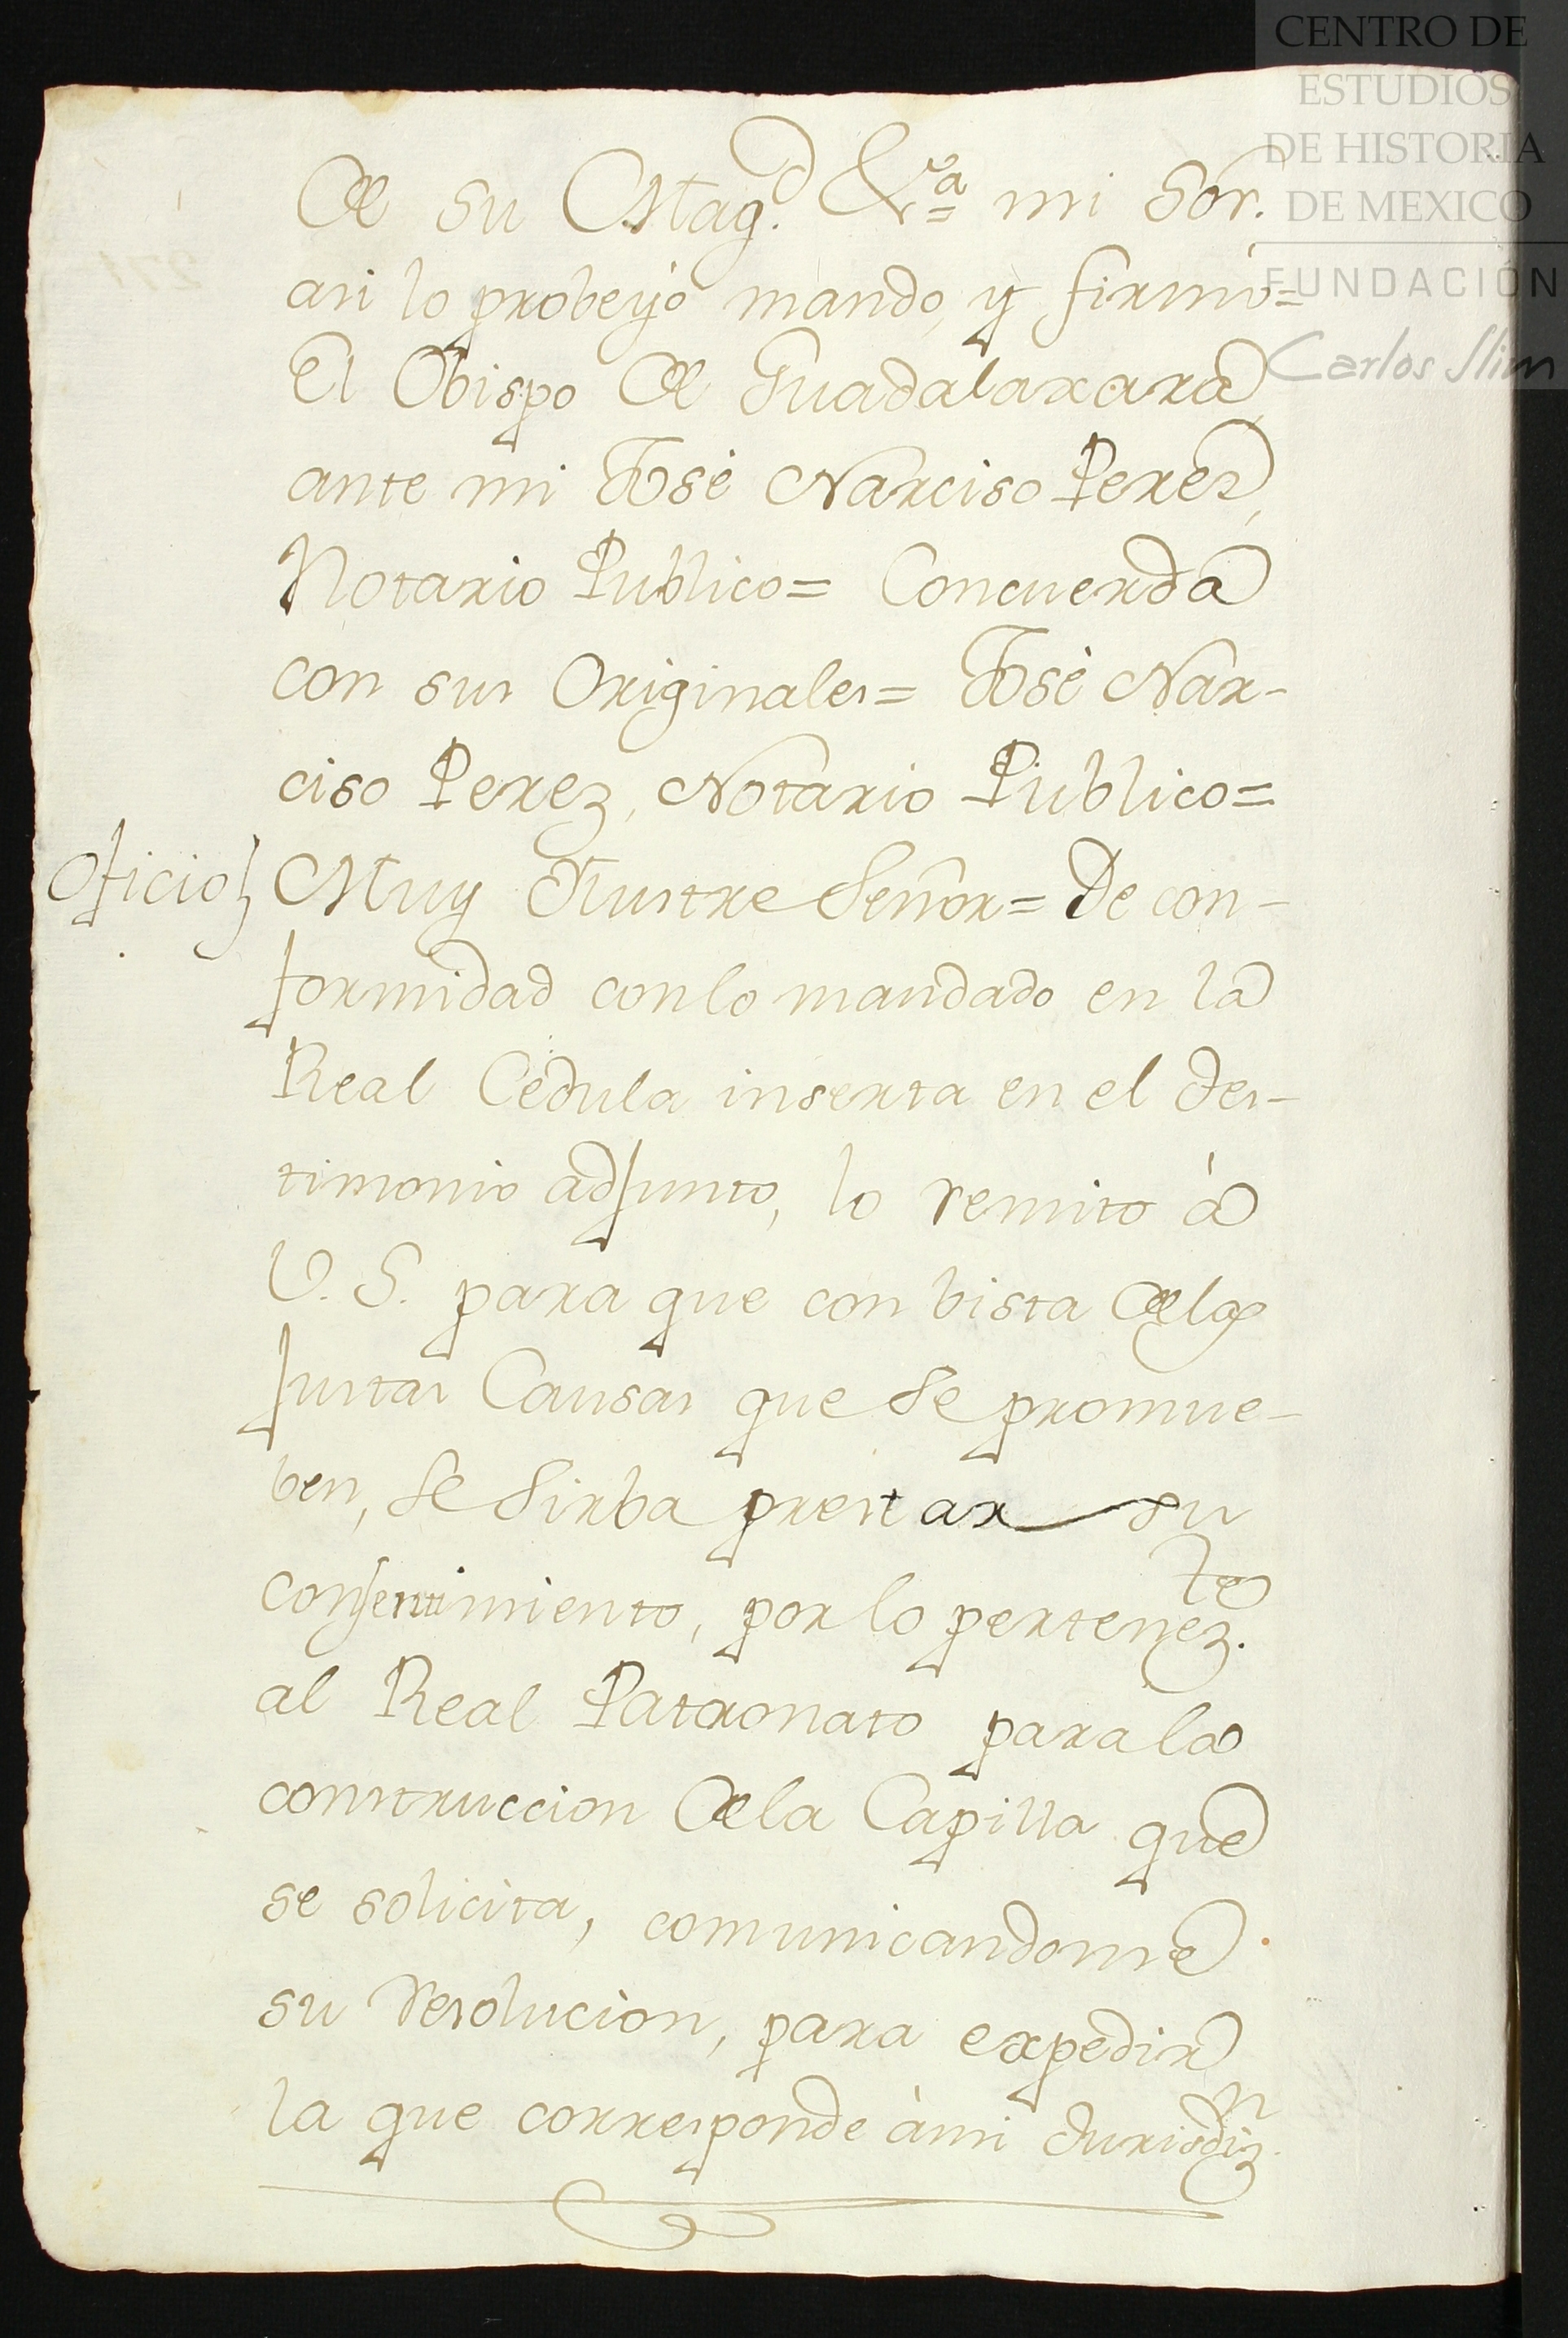 CENTRO DE
ESTUDIOS
DE HISTORIA
DE MEXICO
FUNDACIÓN
Carlos Slim
de su Mag.d &.ra mi Sor.
asi lo probeyó mando, y firmó=
El Obispo de Guadalaxara
ante mi José Narciso Perez,
Notario Publico= Concuerda
con sus Originales= José Nar-
ciso Perez, Notario Publico=
Oficio} Muy Ilustre Señor= De con-
formidad con lo mandado en la
Real Cedula inserta en el tes-
timonio adjunto, lo remito à
V. S. para que con bista de las
justas Causas que se promue-
ben, se sirba prestar su
consentimiento, por lo pertenez.te
al Real Patronato para la
construccion de la Capilla que
se solicita, comunicandome
su resolucion, para expedir
la que corresponde à mi Jurisdiz.n